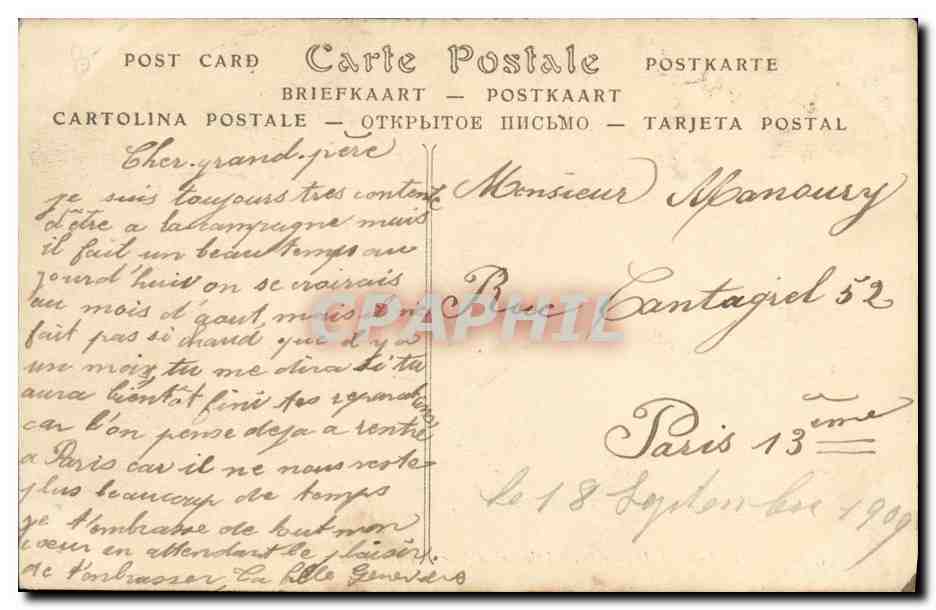 POST CARD Carte Postale POSTKARTE
BRIEFKAART — POSTKAART
CARTOLINA POSTALE — ОТКРЫТОЕ ПИСЬМО — TARJETA POSTAL
Cher grand-père
je suis toujours tres contente
d'être a la campagne mais
il fait un beau temps au
jourd'hui on se croirais
au mois d'aout mais il ni
fait pas si chaud que d'y a
un mois, tu me dira si tu
aura bientôt fini tes reparations
car l'on pense deja a rentré
a Paris car il ne nous reste
plus beaucoup de temps
je t'embrasse de tout mon
coeur en attendant le plaisir
de t'enbrasser, ta Geneviève
Monsieur Manoury
Rue Cantagrel 52
Paris 13ème
le 18 Septembre 1909
CPAPHIL